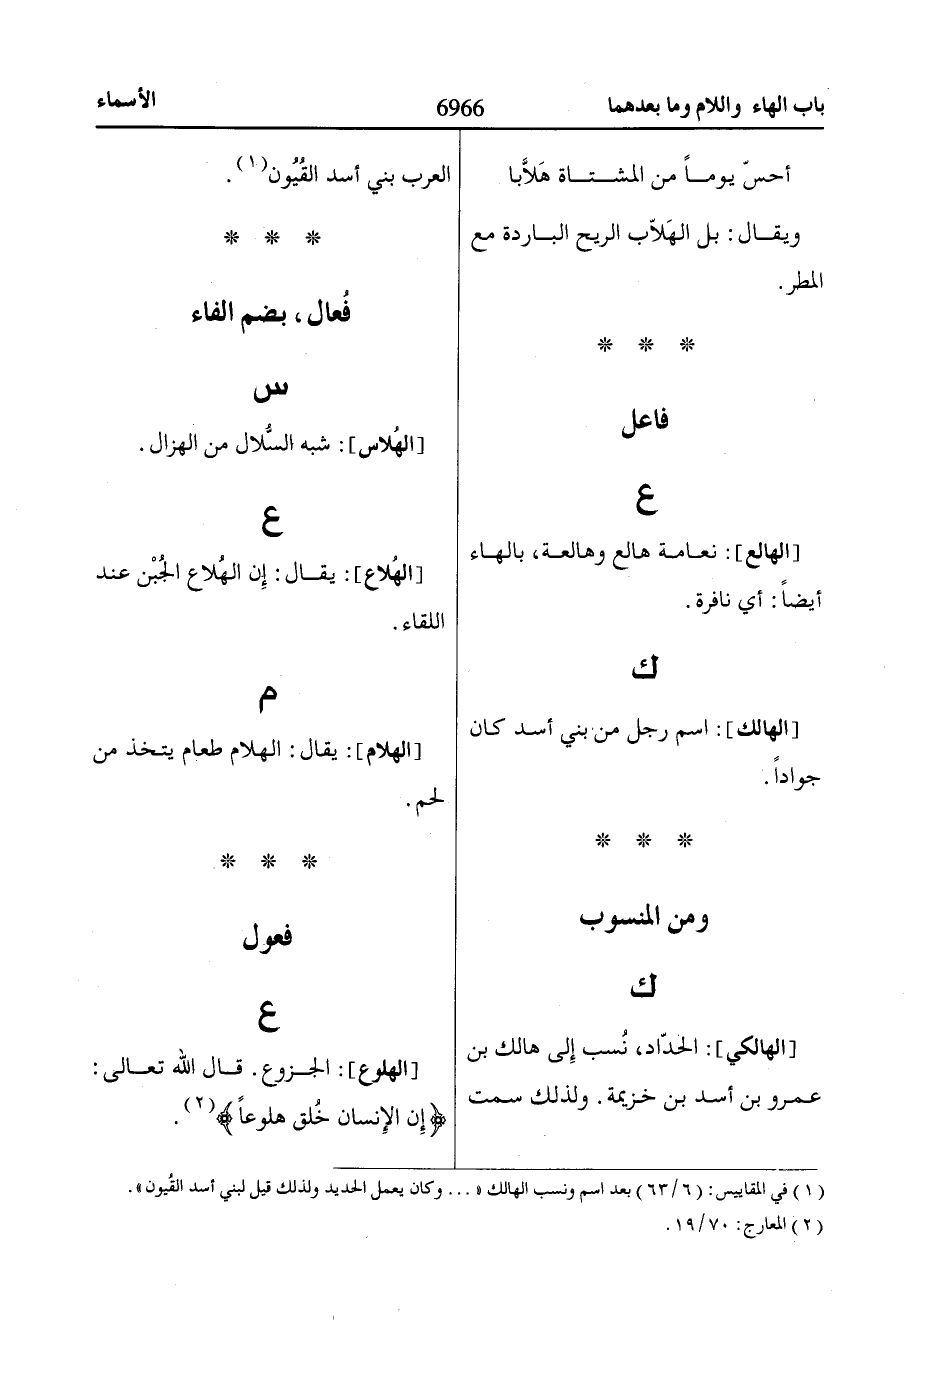 باب الهاء واللام وما بعدهما
6966
الأسماء
أحسّ يوماً من المشتاة هَلاَّبا
ويقال: بل الهَلاّب الريح الباردة مع
المطر.
* * *
فاعل
ع
[الهالع]: نعامة هالع وهالعة، بالهاء
أيضاً: أي نافرة.
ك
[الهالك]: اسم رجل من بني أسد كان
جواداً.
* * *
ومن المنسوب
ك
[الهالكي]: الحدّاد، نُسب إلى هالك بن
عمرو بن أسد بن خزيمة. ولذلك سمت
العرب بني أسد القُيُون(١).
* * *
فُعال، بضم الفاء
س
[الهُلاس]: شبه السُّلال من الهزال.
ع
[الهُلاع]: يقال: إن الهُلاع الجُبْن عند
اللقاء.
م
[الهلام]: يقال: الهلام طعام يتخذ من
لحم.
* * *
فعول
ع
[الهلوع]: الجزوع. قال الله تعالى:
﴿إن الإنسان خُلق هلوعاً﴾(٢).
(١) في المقاييس: (٦٣/٦) بعد اسم ونسب الهالك «... وكان يعمل الحديد ولذلك قيل لبني أسد القُيون».
(٢) المعارج: ١٩/٧٠.